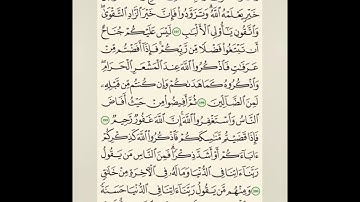 خَيْرٍ يَعْلَمْهُ ٱللَّهُ وَتَزَوَّدُوا۟ فَإِنَّ خَيْرَ ٱلزَّادِ ٱلتَّقْوَىٰ
وَٱتَّقُونِ يَـٰٓأُو۟لِى ٱلْأَلْبَـٰبِ ١٩٧ لَيْسَ عَلَيْكُمْ جُنَاحٌ
أَن تَبْتَغُوا۟ فَضْلًا مِّن رَّبِّكُمْ فَإِذَآ أَفَضْتُم مِّنْ
عَرَفَـٰتٍ فَٱذْكُرُوا۟ ٱللَّهَ عِندَ ٱلْمَشْعَرِ ٱلْحَرَامِ
وَٱذْكُرُوهُ كَمَا هَدَىٰكُمْ وَإِن كُنتُم مِّن قَبْلِهِۦ
لَمِنَ ٱلضَّآلِّينَ ١٩٨ ثُمَّ أَفِيضُوا۟ مِنْ حَيْثُ أَفَاضَ
ٱلنَّاسُ وَٱسْتَغْفِرُوا۟ ٱللَّهَ إِنَّ ٱللَّهَ غَفُورٌ رَّحِيمٌ ١٩٩
فَإِذَا قَضَيْتُم مَّنَـٰسِكَكُمْ فَٱذْكُرُوا۟ ٱللَّهَ كَذِكْرِكُمْ
ءَابَآءَكُمْ أَوْ أَشَدَّ ذِكْرًا فَمِنَ ٱلنَّاسِ مَن يَقُولُ
رَبَّنَآ ءَاتِنَا فِى ٱلدُّنْيَا وَمَا لَهُۥ فِى ٱلْـَٔاخِرَةِ مِنْ خَلَـٰقٍ
٢٠٠ وَمِنْهُم مَّن يَقُولُ رَبَّنَآ ءَاتِنَا فِى ٱلدُّنْيَا حَسَنَةً